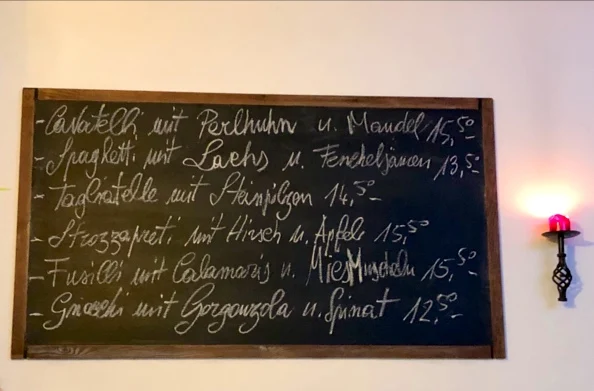 - Cavatelli mit Perlhuhn u. Mandel 15,50
- Spaghetti mit Lachs u. Fenchelsamen 13,50
- Tagliatelle mit Steinpilzen 14,50
- Strozzapreti mit Hirsch u. Äpfel 15,50
- Fusilli mit Calamaris u. MiesMuscheln 15,50
- Gnocchi mit Gorgonzola u. Spinat 12,50